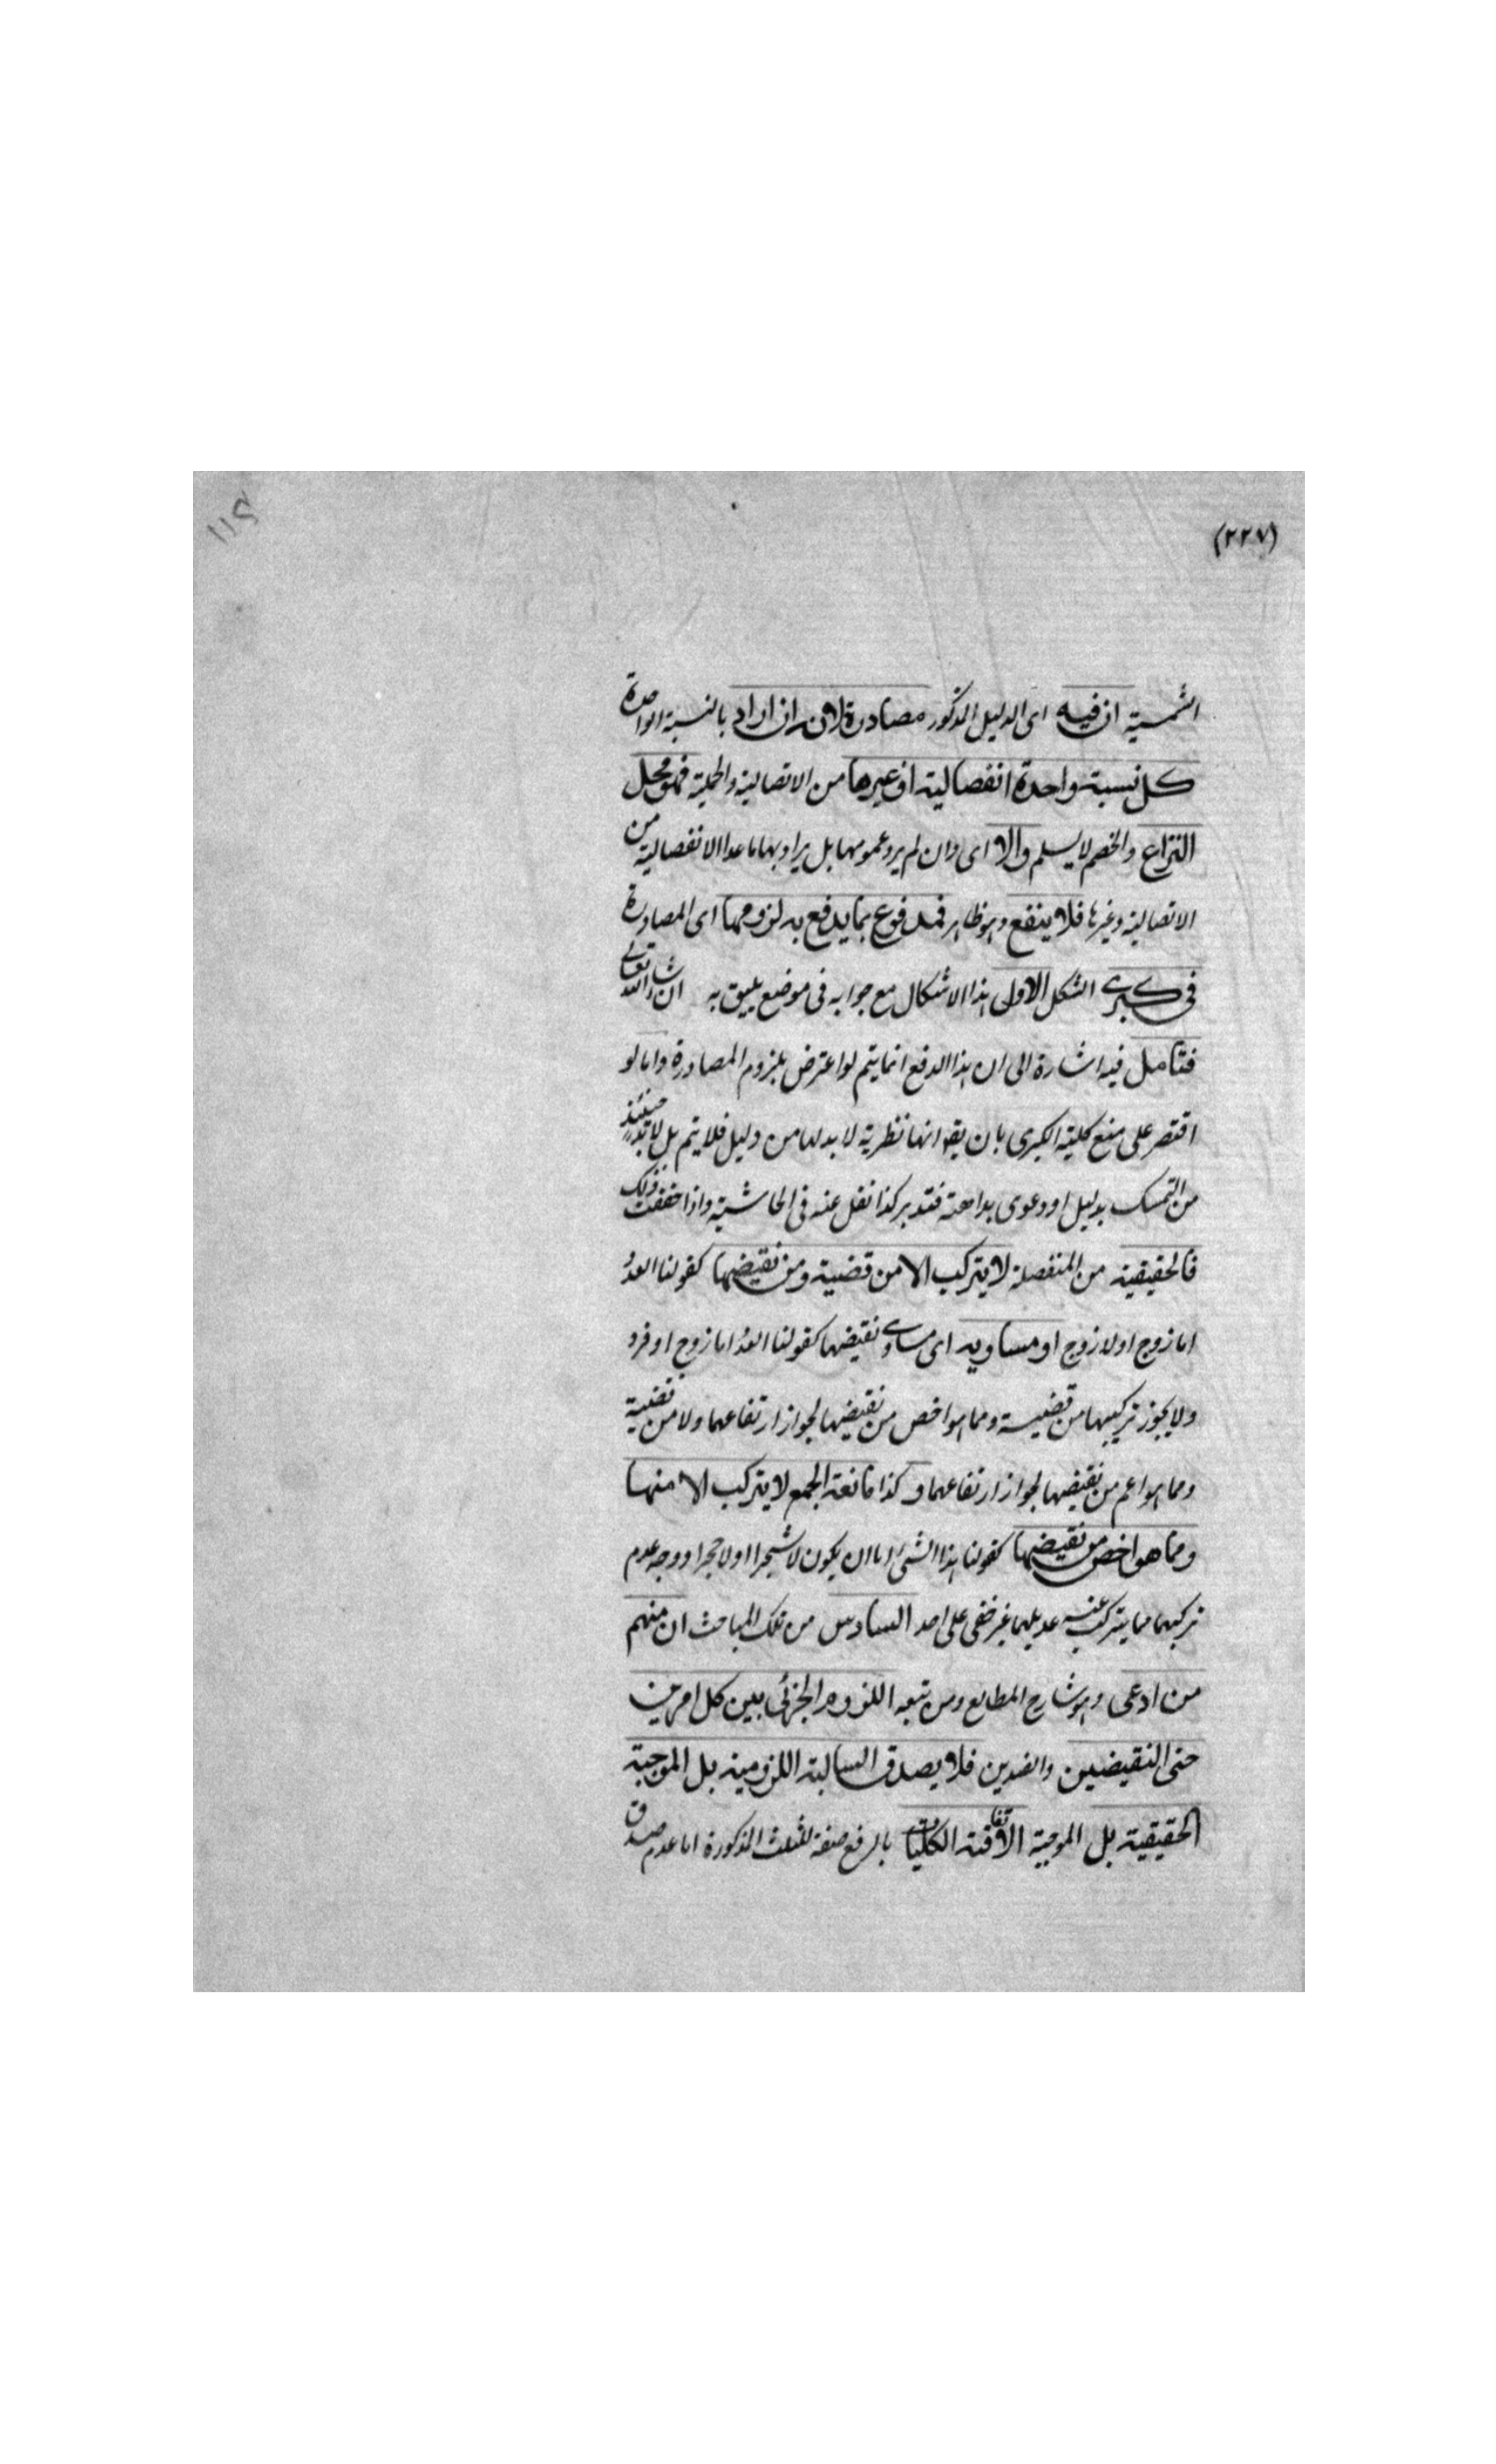 (٢٢٧)
الشمسية ان فيه اى الدليل المذكور مصادرة لانه ان اراد بالنسبة الواحدة
كل نسبة واحدة انفصالية او غيرها من الاتصالية والحملية فهو محل
النزاع والخصم لا يسلم والا اى وان لم يرد عمومها بل يراد بها ما عدا الانفصالية من
الاتصالية وغيرها فلا ينفع وهو ظاهر فمدفوع بما يدفع به لزومها اى المصادرة
فى كبرى الشكل الاولى هذا الاشكال مع جوابه فى موضع يليق به ان شاء الله تعالى
فتامل فيه اشارة الى ان هذا الدفع انما يتم لو اعترض بلزوم المصادرة واما لو
اقتصر على منع كلية الكبرى بان يقو انها نظرية لا بد لها من دليل فلا يتم بل لا بد حينئذ
من التمسك بدليل او دعوى بداهته فتدبر كذا نقل عنه فى الحاشية واذا حققت ذلك
فالحقيقية من المنفصلة لا يتركب الا من قضية ومن نقيضها كقولنا العدد
اما زوج او لا زوج او مساويه اى مساوى نقيضها كقولنا العدد اما زوج او فرد
ولا يجوز تركيبها من قضية ومما هو اخص من نقيضها لجواز ارتفاعهما ولا من قضية
ومما هو اعم من نقيضها لجواز ارتفاعهما وكذا مانعة الجمع لا يتركب الا منها
ومما هو اخص من نقيضها كقولنا هذا الشئ اما ان يكون لا شجرا او لا حجرا ووجه عدم
تركبهما مما يتركب عنه عديلهما غير خفى على احد السادس من تلك المباحث ان منهم
من ادعى وهو شارح المطالع ومن تبعه اللزوم الجزئى بين كل امرين
حتى النقيضين والضدين فلا يصدق السالبة اللزومية بل الموجبة
الحقيقية بل الموجبة الاتفاقية الكليات بالرفع صفة للثلث المذكورة اما عدم صدق